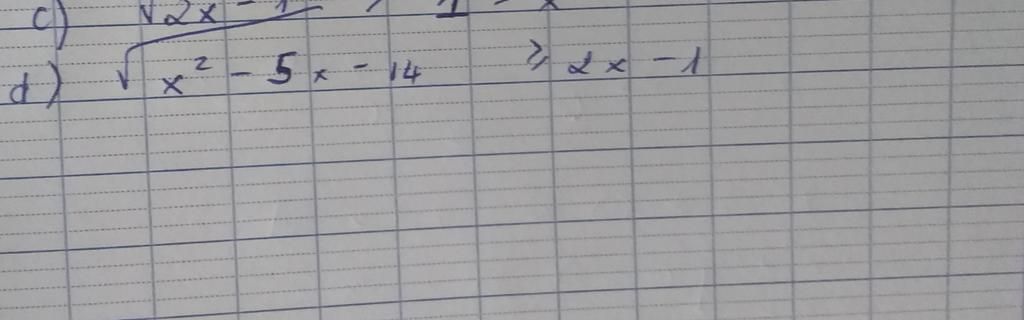 c) √2x - 1
d) √x² - 5x - 14 ≥ 2x - 1